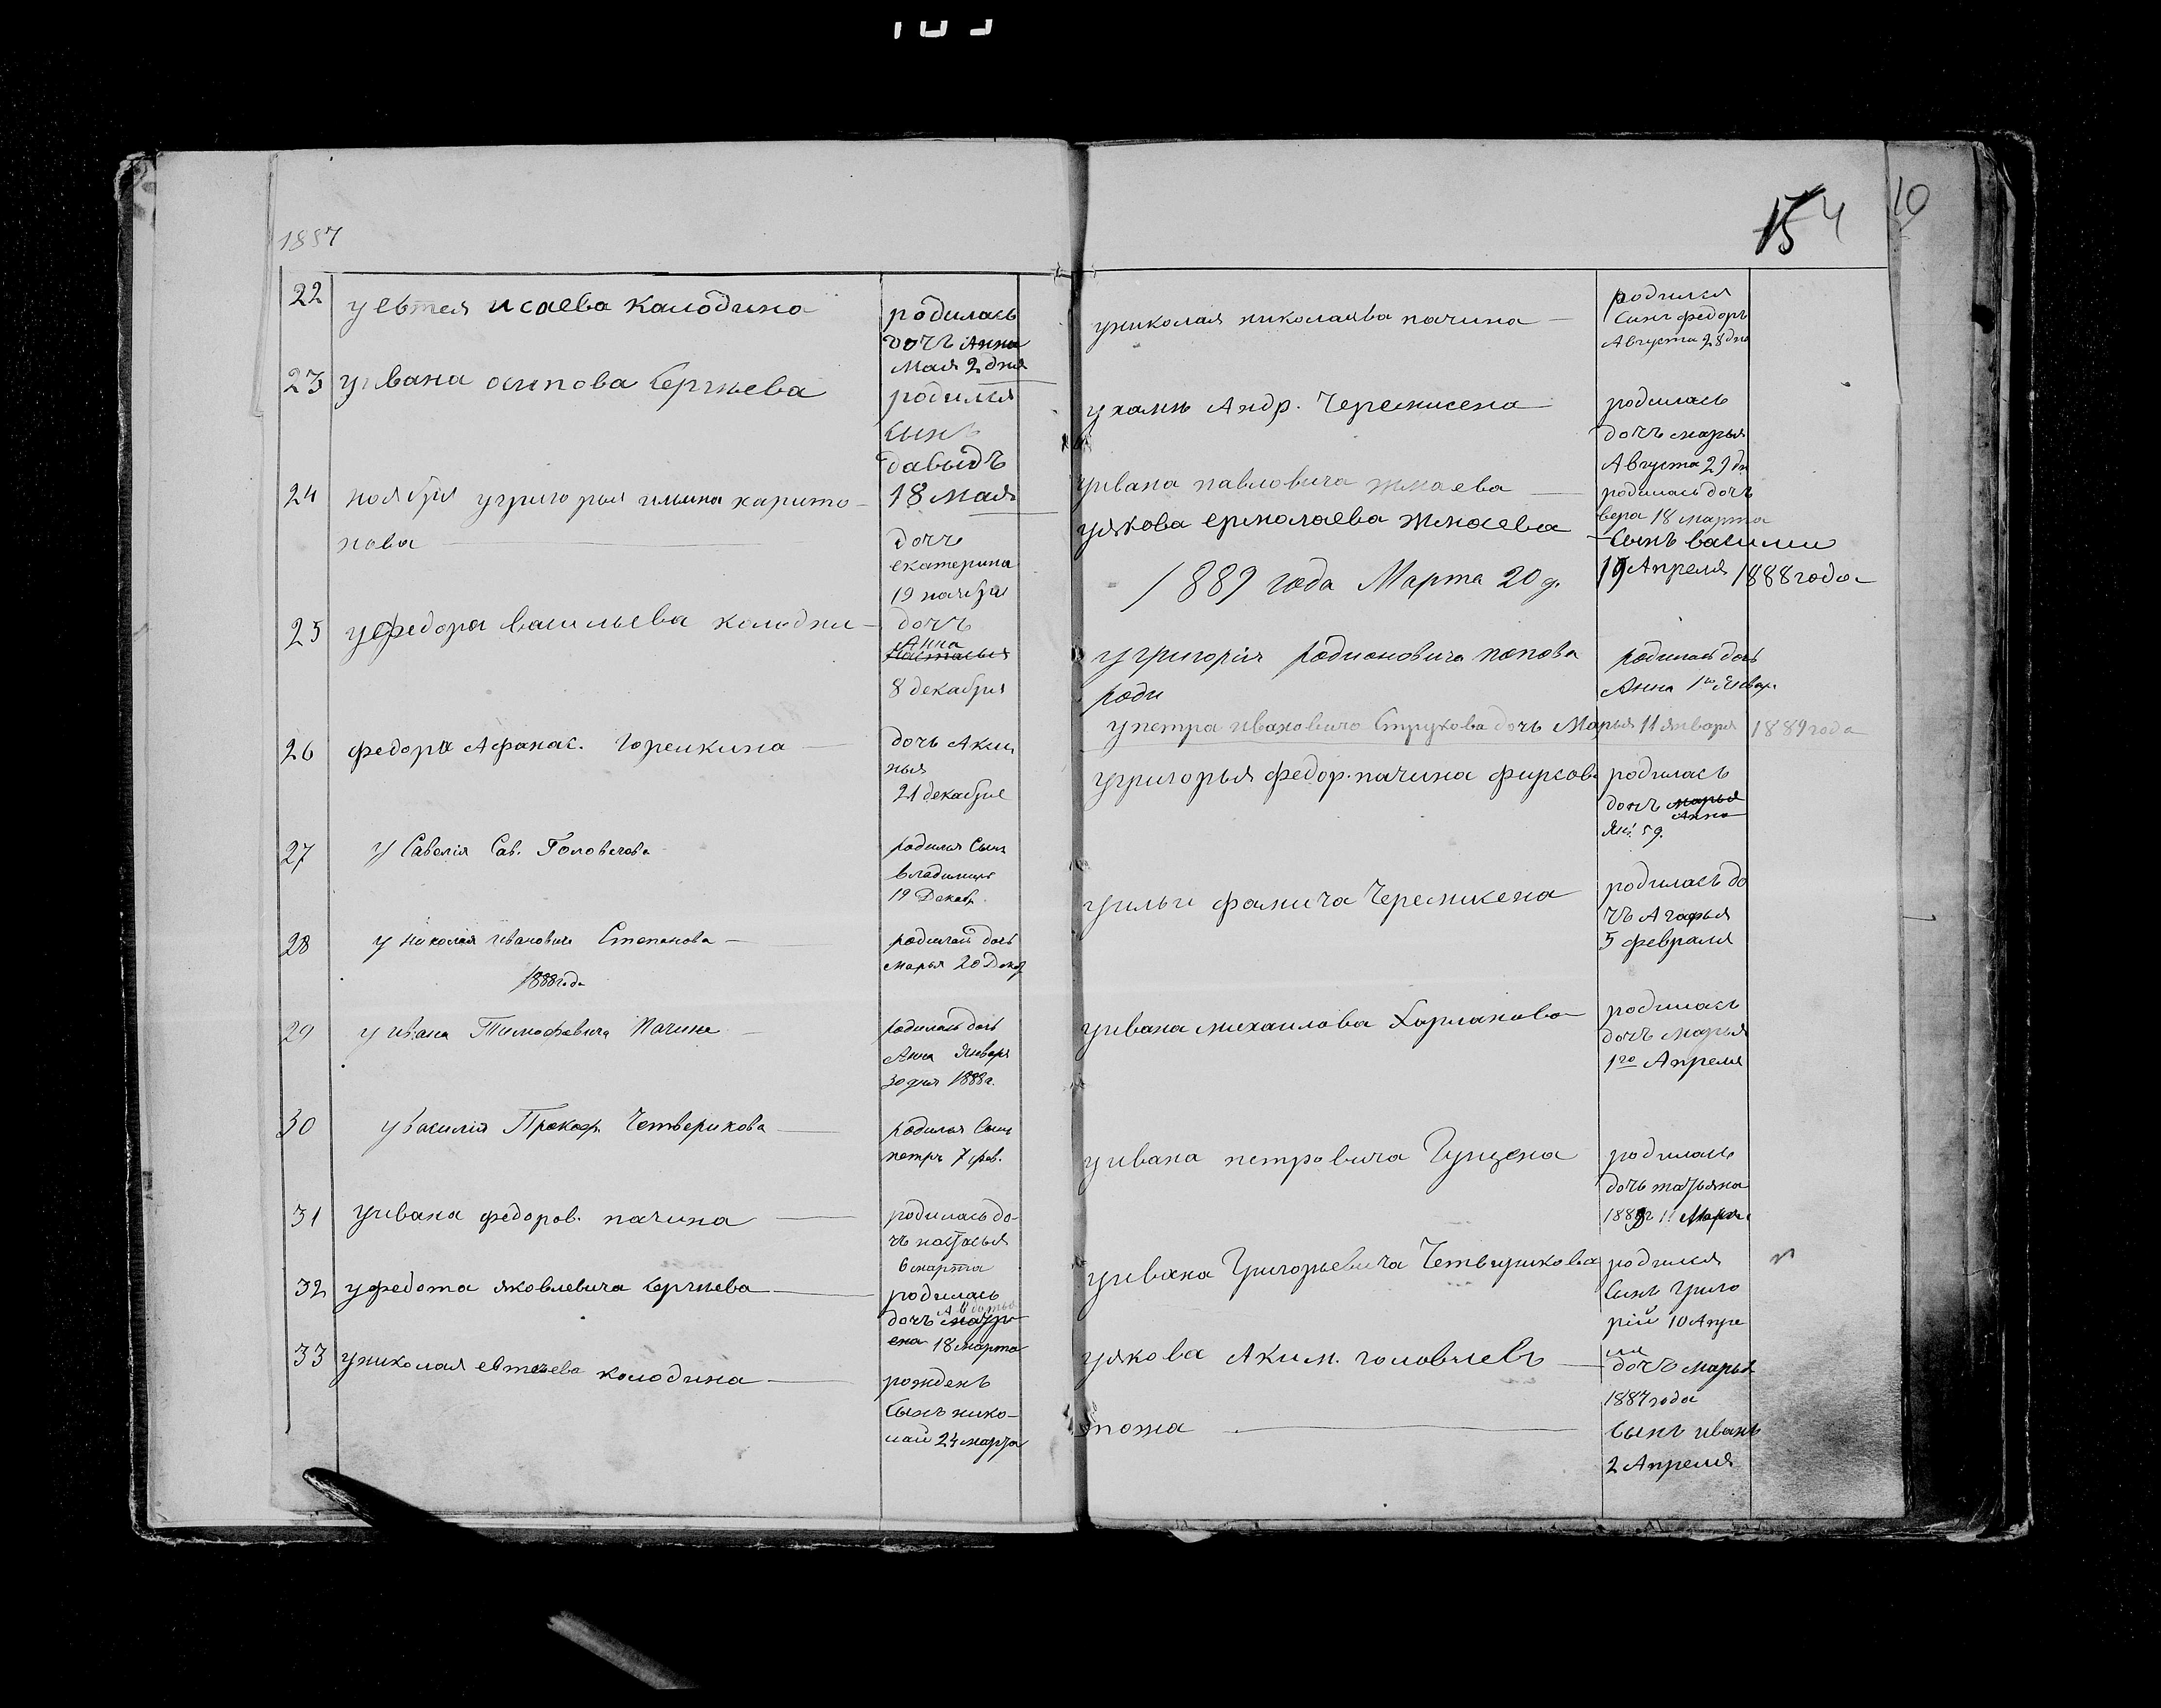 1887
22 у евтея исаева калодина родилась
дочь Анна
мая 2 дня
23 у ивана осипова Сергиева родился
сынъ
давыдъ
18 мая
24 ноября у григорья харито-
нова дочь
екатерина
19 ноября
25 у федора васильева колодки- дочь
Анна
Настасья
8 декабря
26 федора Афанас. горелкина дочь Аки
нья
21 декабря
27 у Савелія Сав. Головачова родился Сынъ
владимиръ
19 Декаб.
28 у николая ивановича Степанова родилась дочь
марья 20 Дек
1888 года
29 у ивана Тимофеевича Пачина родилась дочь
Анна Января
30 дня 1888 г.
30 у василія Прокоф. Четверикова родился Сынъ
петръ 7 фев.
31 у ивана федоров. пачина родилась до-
чь настасья
6 марта
32 у федота яковлевича сергиева родилась
Авдотья
дочь матр
ена 18 марта
33 у николая евтеева колодина рожденъ
Сынъ нико-
лай 24 марта
154
10
у николая николаява пачина родился
Сынъ федоръ
Августа 28 дня
у хамы Андр. Черемисена родилась
дочь марья
Августа 29 дн
у ивана павловича жмаева родилась дочь
вера 18 марта
у якова ермолаева жмаева Сынъ васили
19 Апреля 1888 года
1889 года Марта 20 д.
у григорія родионовича попова родилась дочь
роди Анна 1го Январ.
у петра ивановича Струкова дочь Марья 11 января 1889 года
у григорья федор. пачина фирсов родилась
дочь марья
Анна
Ян. 5 д.
у ильи фомича Черемисена родилась до
чь Агафья
5 февраля
у ивана михаилова Харланова родилась
дочь марья
1го Апреля
у ивана петровича Гунцена родилась
дочь татьяна
1889 г 11 Марта
у ивана Григорьевича Четверикова родился
Сынъ Григо
рій 10 Апре
ля
у якова Аким. головачевъ дочь марья
1887 года
тожа Сынъ иванъ
2 Апреля